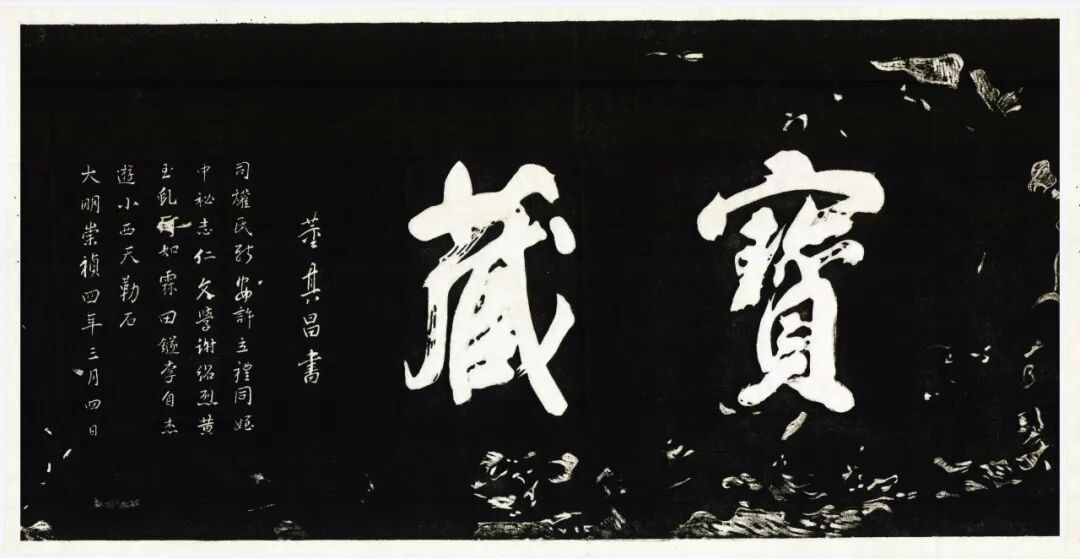 寶藏
董其昌書
司氏新安許立禮同姬
中祕志仁文學謝紹烈黃
玉虬如霖田李自杰
遊小西天勒石
大明崇禎四年三月四日